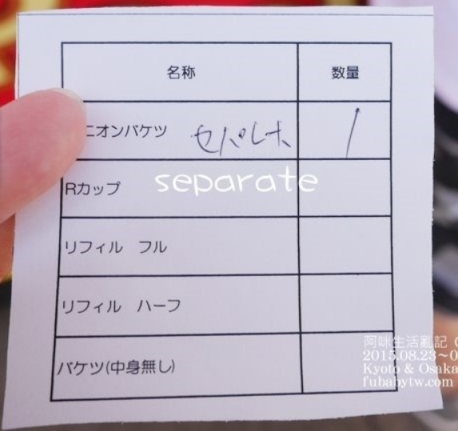 名称 数量
ニオンバケツ セパレート 1
Rカップ
separate
リフィル フル
リフィル ハーフ
バケツ(中身無し)
阿咪生活亂記
2015.08.23~0
Kyoto & Osaka
fubabytw.com